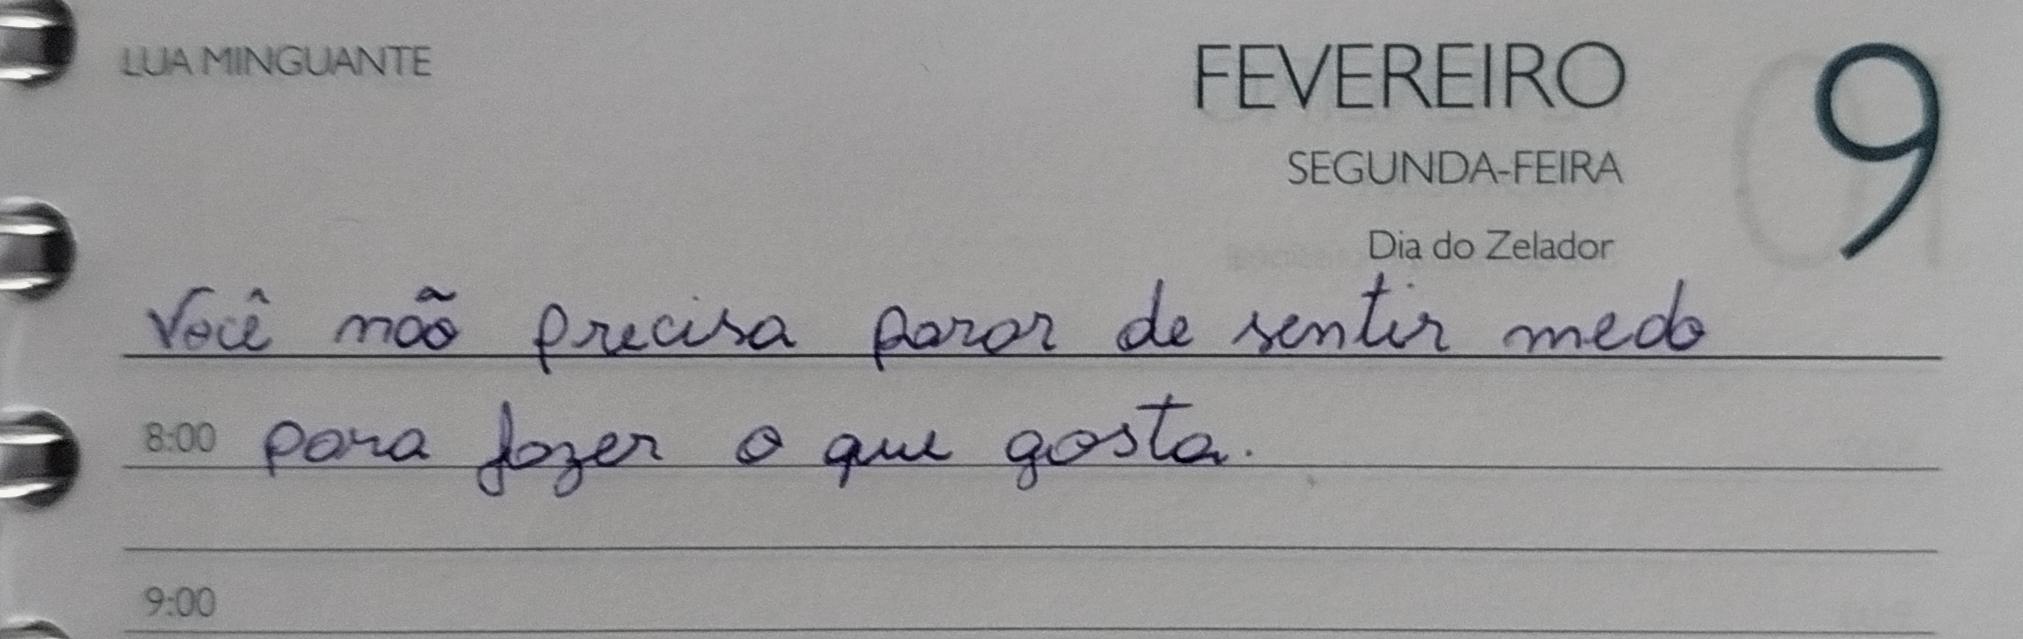 LUA MINGUANTE
FEVEREIRO 9
SEGUNDA-FEIRA
Dia do Zelador
Você não precisa parar de sentir medo
8:00 para fazer o que gosta.
9:00